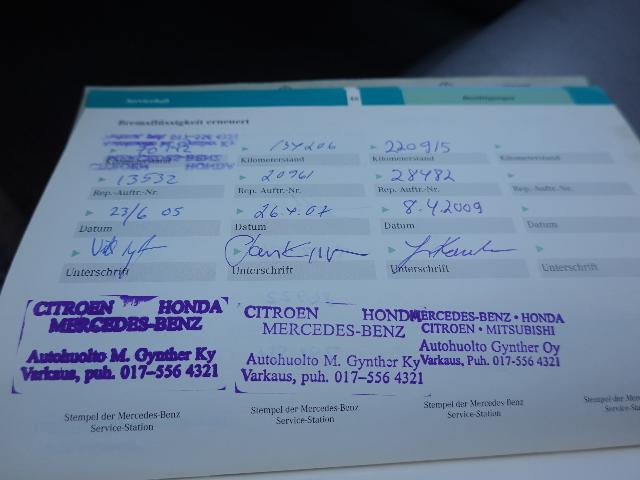 Serviceheft 18 Bestätigungen
Bremsflüssigkeit erneuert
134206 220915
Kilometerstand Kilometerstand Kilometerstand
13532 20961 28482
Rep.-Auftr.-Nr. Rep.-Auftr.-Nr. Rep.-Auftr.-Nr. Rep.-Auftr.-Nr.
23/6 05 26.4.07 8.4.2009
Datum Datum Datum Datum
Unterschrift Unterschrift Unterschrift Unterschrift
CITROEN HONDA
MERCEDES-BENZ
Autohuolto M. Gynther Ky
Varkaus, puh. 017-556 4321
CITROEN HONDA
MERCEDES-BENZ
Autohuolto M. Gynther Ky
Varkaus, puh. 017-556 4321
MERCEDES-BENZ • HONDA
CITROEN • MITSUBISHI
Autohuolto Gynther Oy
Varkaus, Puh. 017-556 4321
Stempel der Mercedes-Benz
Service-Station
Stempel der Mercedes-Benz
Service-Station
Stempel der Mercedes-Benz
Service-Station
Stempel der